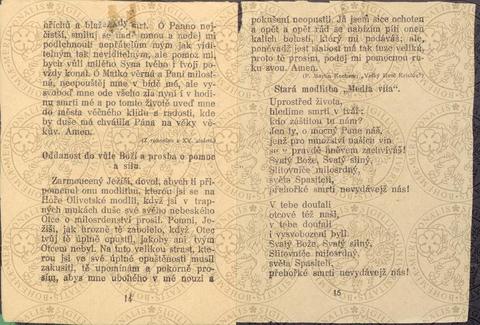 hříchů a blaženy smrt. Ó Panno nej-
čistší, smiluj se nade mnou a nedej mi
podlehnouti nepřátelům mým jak vidi-
telným tak neviditelným, ale pomoz mi,
bych vůli milého Syna tvého i tvoji po-
vždy konal. Ó Matko věrná a Paní milost-
ná, neopouštěj mne v bídě mé, ale vy-
svoboď mne ode všeho zla nyní i v ho-
dinu smrti mé a po tomto životě uveď mne
do města věčného klidu a radosti, kde
by duše má chválila Pána na věky vě-
kův. Amen.
(Z rukopisu z XV. století.)
Oddanost do vůle Boží a prosba o pomoc
a sílu.
Zarmoucený Ježíši, dovol, abych ti při-
pomenul onu modlitbu, kterou jsi se na
Hoře Olivetské modlil, když jsi v trap-
ných mukách duše své svého nebeského
Otce o milosrdenství prosil. Pomni, Je-
žíši, jak hrozně tě zabolelo, když Otec
tvůj tě úplně opustil, jakoby ani tvým
Otcem nebyl. Na tuto velikou strast, kte-
rou jsi ve své úplné opuštěnosti musil
zakusiti, tě upomínám a pokorně pro-
sím, abys mne ubohého v mé nouzi a
14
pokušení neopustil. Já jsem sice ochoten
a opět a opět rád se nabízím píti onen
kalich bolesti, který mi podáváš; ale,
poněvadž jest slabost má tak tuze veliká,
proto tě prosím, podej mi pomocnou ru-
ku svou. Amen.
(P. Martin Kochem: „Velký Život Kristův“)
Stará modlitba „Media vita“.
Uprostřed života,
hledíme smrti v tvář;
kdo záštitou tu nám?
Jen ty, o mocný Pane náš,
jenž pro množství našich vin
se v pravdě hněvem zachvíváš!
Svatý Bože, Svatý silný,
Slitovniče milosrdný,
světa Spasiteli,
přehořké smrti nevydávejž nás!
V tebe doufali
otcové též naši,
v tebe doufali
i vysvobozeni byli.
Svatý Bože, Svatý silný,
Slitovniče milosrdný,
světa Spasiteli,
přehořké smrti nevydávejž nás!
15